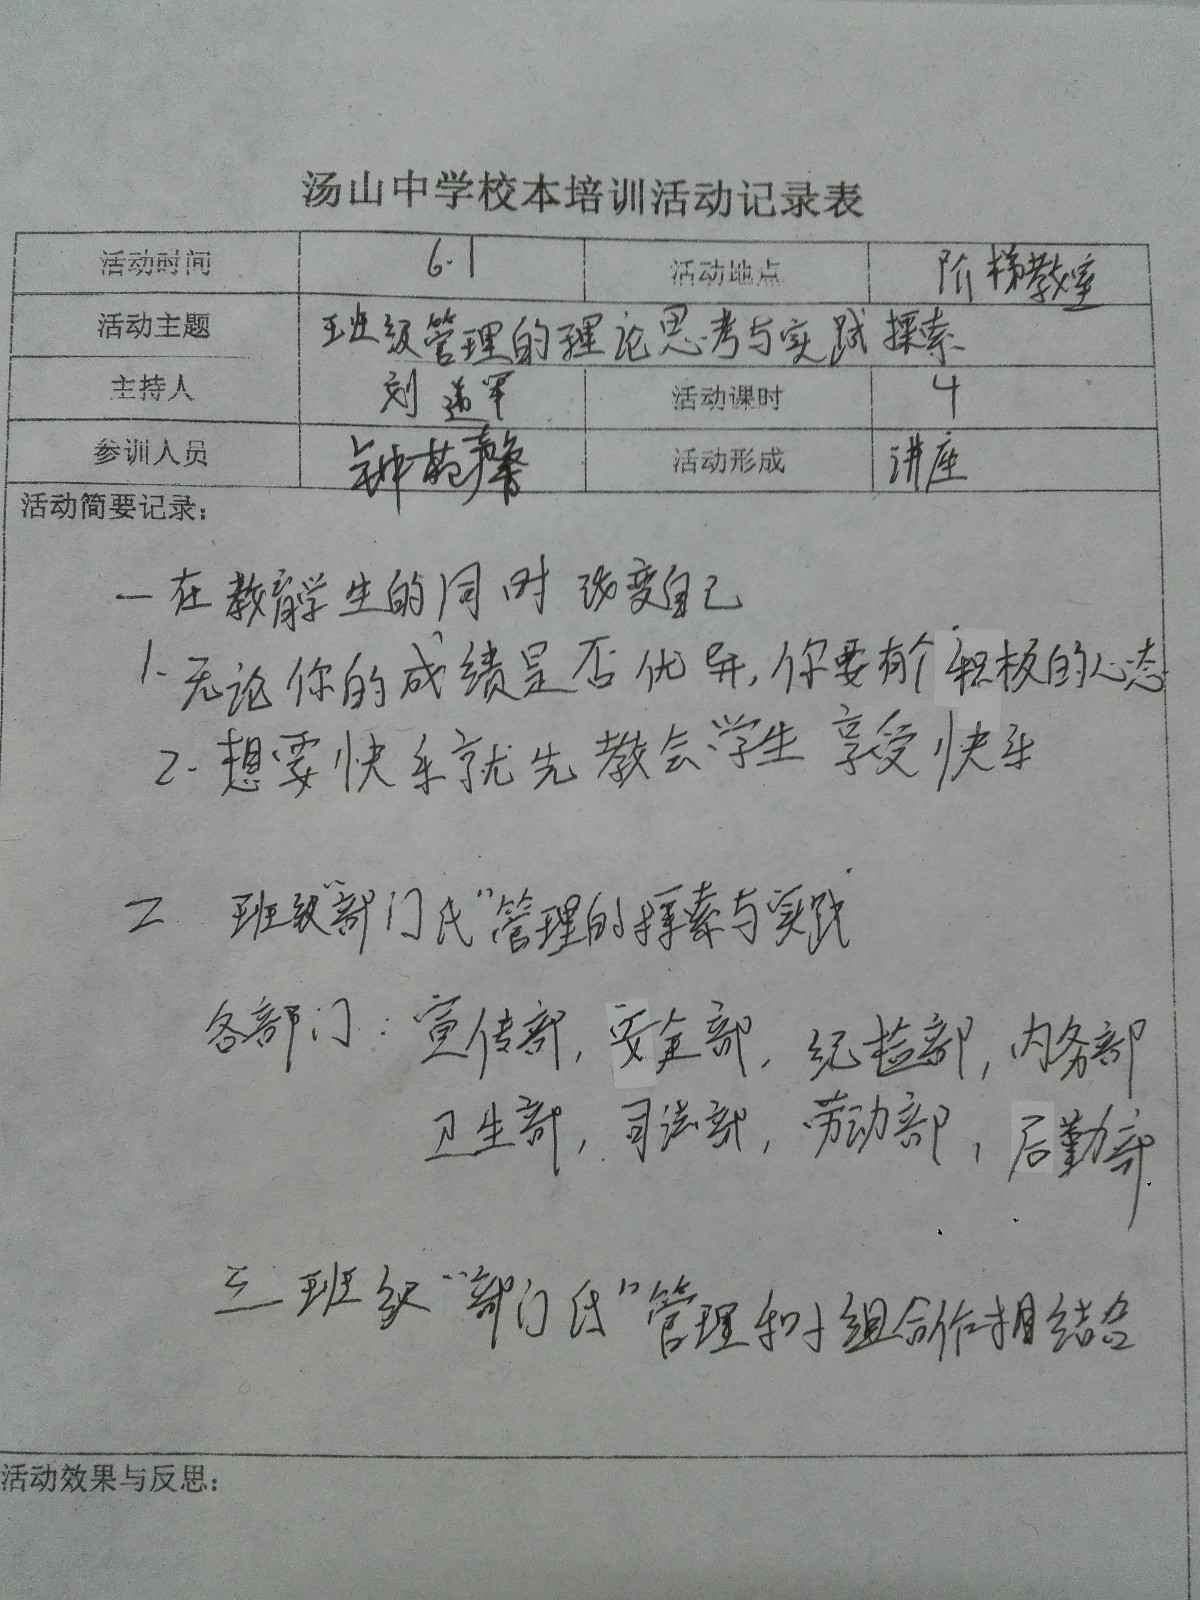 汤山中学校本培训活动记录表
活动时间 6.1 活动地点 阶梯教室
活动主题 班级管理的理论思考与实践探索
主持人 刘道军 活动课时 4
参训人员 钟苑馨 活动形成 讲座
活动简要记录:
一在教育学生的同时改变自己
1.无论你的成绩是否优异,你要有个积极的心态
2.想要快乐就先教会学生享受快乐
二 班级"部门氏"管理的探索与实践
各部门:宣传部,安全部,纪检部,内务部
卫生部,司法部,劳动部,后勤部
三 班级"部门氏"管理和小组合作相结合
活动效果与反思: